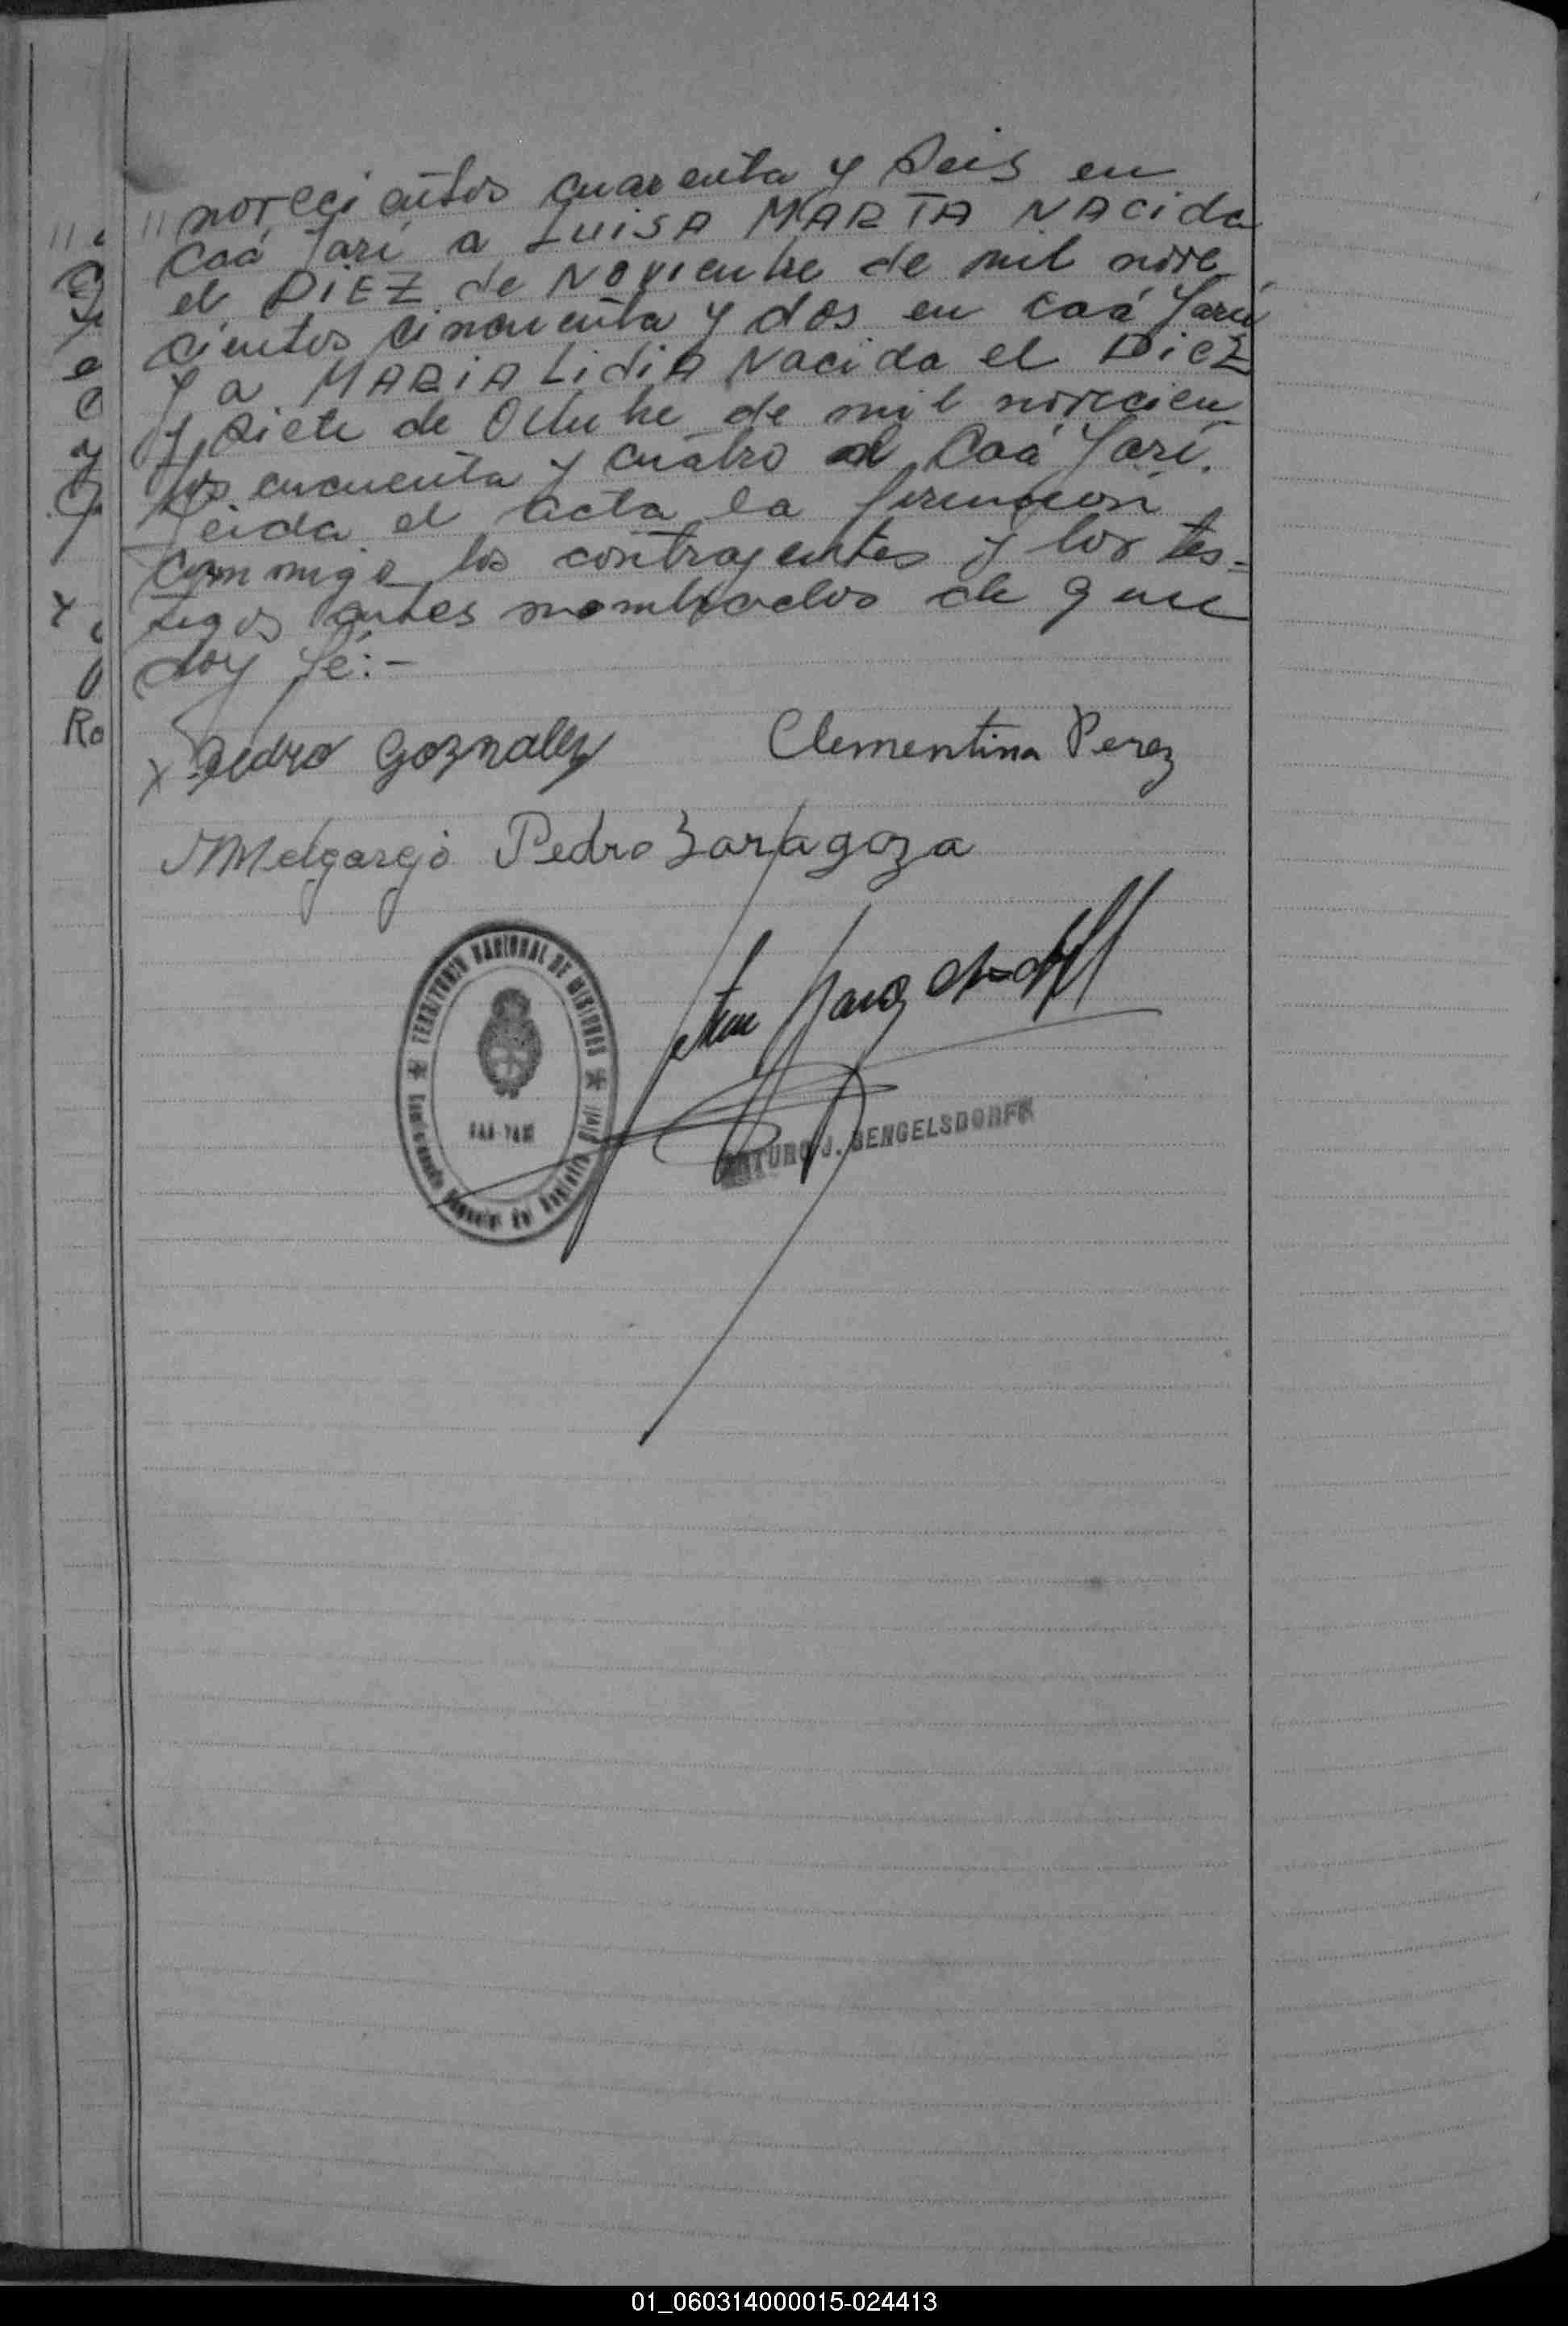 // novecientos cuarenta y seis en
Caá Yarí a LUISA MARTA NACida
el DiEZ de Noviembre de mil nove
cientos cincuenta y dos en Caá Yarí
y a MARiA LidiA Nacida el DiEZ
y siete de Octubre de mil novecien
tos cincuenta y cuatro Caá Yarí.
Leida el acta la firmaron
conmigo los contrayentes y los tes=
tigos antes nombrados de que
doy fé:-
X Pedro Goznalez Clementina Perez
Melgarejo Pedro Zaragoza
TERRITORIO NACIONAL DE MISIONES
CAÁ-YARÍ
Registro Civil
ARTURO J. BENGELSDORFF
Ro
01_060314000015-024413